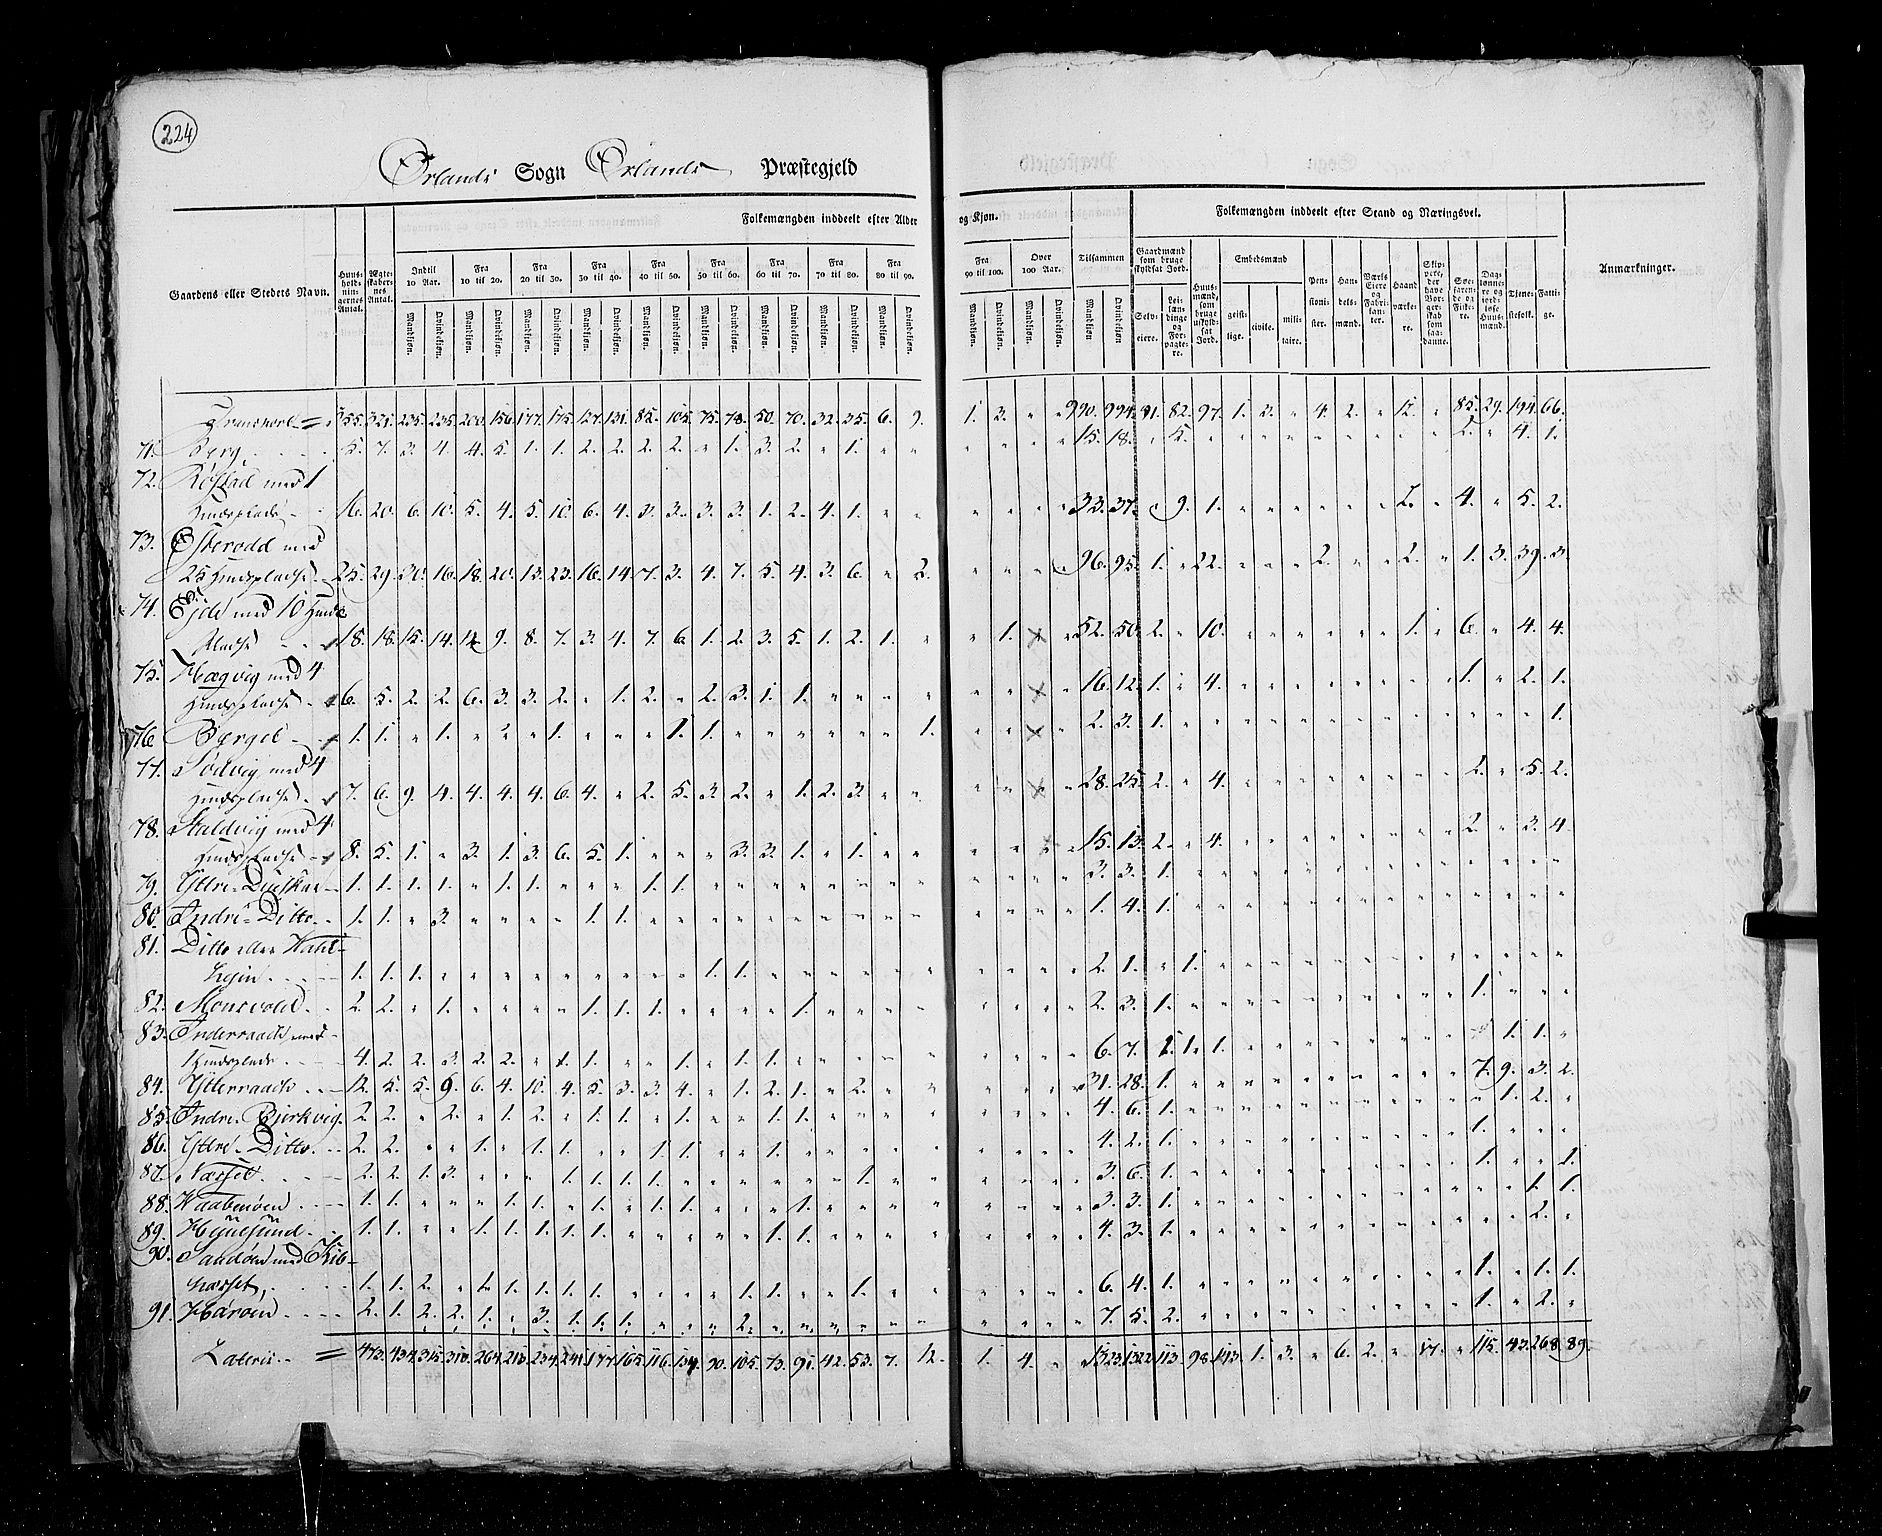 224
Ørlands Sogn Ørlands Præstegjeld
Folkemængden inddeelt efter Alder og Kjøn.
Folkemængden inddeelt efter Stand og Næringsvei.
Gaardens eller Stedets Navn.
Huus-holdnin-gernes Antal.
Ægte-skaber-nes Antal.
Indtil 10 Aar.
Fra 10 til 20.
Fra 20 til 30.
Fra 30 til 40.
Fra 40 til 50.
Fra 50 til 60.
Fra 60 til 70.
Fra 70 til 80.
Fra 80 til 90.
Fra 90 til 100.
Over 100 Aar.
Tilsammen
Mandkjøn. Qvindekjøn.
Gaardmænd som bruge skyldsat Jord.
Selv-eiere.
Lei-læn-dinge og For-pagte-re.
Huus-mænd, som bruge uskyld-sat Jord.
Embedsmænd
geist-lige.
civile.
mili-taire.
Pen-sioni-ster.
Han-dels-mænd.
Værks Eiere og Fabri-kanter.
Haand-værke-re.
Skip-pere, der have Bor-ger-skab som saa-danne.
Søe-farende og Fiske-re.
Dag-lønne-re og jord-løse Huus-mænd.
Tjene-stefolk.
Fatti-ge.
Anmærkninger.
Transport = 355. 321. 235. 235. 200. 156. 177. 175. 127. 131. 85. 105. 75. 78. 50. 70. 32. 35. 6. 9. 1. 3. " " 990. 994. 91. 82. 97. 1. 2. " 4. 2. " 12. " 85. 29. 194. 66.
71. Berg 5. 7. 3. 4. 4. 5. 1. 1. 2. 2. 2. 2. " 1. 3. 2. " 1. " " " " " " 15. 18. " 5. " " " " " " " " " 2. " 4. 1.
72. Røstad med 1
Huusplads 16. 20. 6. 10. 5. 4. 5. 10. 6. 4. 3. 3. 3. 3. 1. 2. 4. 1. " " " " " " 33. 37. " 9. 1. " " " " " " 2. " 4. " 5. 2.
73. Østeraad med
25 Huuspladse 25. 29. 20. 16. 18. 20. 13. 23. 16. 14. 7. 3. 4. 7. 5. 4. 3. 6. " 2. " " " " 96. 95. 1. " 22. " " " 2. " " 2. " 1. 3. 39. 3.
74. Eide med 10 Huus
Pladse 18. 18. 15. 14. 14. 9. 8. 7. 3. 4. 7. 6. 1. 2. 3. 5. 1. 2. 1. " " 1. " " 52. 50. 2. " 10. " " " " " " 1. " 6. " 4. 4.
75. Hægvig med 4
Huuspladse 6. 5. 2. 2. 6. 3. 3. 2. " 1. 2. " 2. 3. 1. 1. " " " " " " " " 16. 12. 1. " 4. " " " " " " " " 1. " 2. 1.
76. Berget 1. 1. " 1. " 2. " 1. " " " 1. 1. " " " " " " 1. " " " " 2. 3. 1. " " " " " " " " " " " " " 1.
77. Sødvig med 4
Huuspladse 7. 6. 9. 4. 4. 4. 4. 6. 4. " 2. 5. 3. 2. " 1. 2. 3. " " " " " " 28. 25. 2. " 4. " " " " " " " " 2. " 5. 2.
78. Staldviig med 4
Huuspladse 8. 5. 1. " 3. 1. 3. 6. 5. 1. " " " 3. 3. 1. " 1. " " " " " " 15. 13. 2. " 4. " " " " " " " " 2. " 3. 4.
79. Yttre Duuskar 1. 1. 1. 1. " 1. 1. " " " 1. 1. " " " " " " " " " " " " 3. 3. 1.
80. Indre Ditto 1. 1. " 3. " " " " 1. 1. " " " " " " " " " " " " " " 1. 4. 1.
81. Ditto eller
1. 1. 1. " " " " " " " " " 1. 1. " " " " " " " " " " 2. 1. " 1.
82. Monsvold 2. 2. " 1. " " " " 1. 1. 1. " " " " 1. " " " " " " " " 2. 3. 1. " " " " " " " " " " 1. " " "
83. Inderraade med
1 Huusplads 4. 2. 2. 3. 2. 2. " 1. 1. " " 1. " 1. 1. " " " " " " " " " 6. 7. 1. 1. 1. " " " " " " " " " 1. 1. "
84. Ytterraade 12. 5. 5. 9. 6. 4. 10. 4. 5. 3. 3. 4. " 1. 2. 1. " 2. " " " " " " 31. 28. 1. " " " " " " " " " " 7. 9. 3. 2.
85. Indre Bjerkvig 2. 2. " 2. " 1. 2. " 1. 1. " 1. " " 1. 1. " " " " " " " " 4. 6. 1. " " " " " " " " " " " 1. 2. "
86. Yttre Ditto 2. 2. " " 1. " 1. 1. " " 1. 1. " " 1. " " " " " " " " " 4. 2. 1. " " " " " " " " " " 1. " " "
87. Næsset 2. 2. 1. 3. " " " 1. 1. 1. 1. " " " " " " 1. " " " " " " 3. 6. 1. " " " " " " " " " " 1. " " 1.
88. Kaabenøen 1. 1. " " " 1. 1. " 1. " 1. 1. " " " 1. " " " " " " " " 3. 3. 1. " " " " " " " " " " " " 1. 1.
89. 1. 1. " " 1. 1. 1. 1. 1. " " " " " 1. 1. " " " " " " " " 4. 3. 1. " " " " " " " " " " " " 2. "
90. Sandøen med Kib-
næsset, 1. 1. 2. " 1. 1. 1. 1. 1. " " " " 1. 1. " " 1. " " " " " " 6. 4. 1. " " " " " " " " " " 1. " 1. 1.
91. Harøen 2. 1. 2. 2. 1. " 3. 1. 1. 1. " " " 2. " " " " " " " " " " 7. 5. 2. " " " " " " " " " " 1. " 2. "
Lateris = 473. 434. 315. 310. 264. 213. 234. 241. 177. 165. 116. 134. 90. 105. 73. 91. 42. 53. 7. 12. 1. 4. " " 1323. 1322. 113. 98. 143. 1. 3. " 6. 2. " 17. " 115. 43. 268. 89.